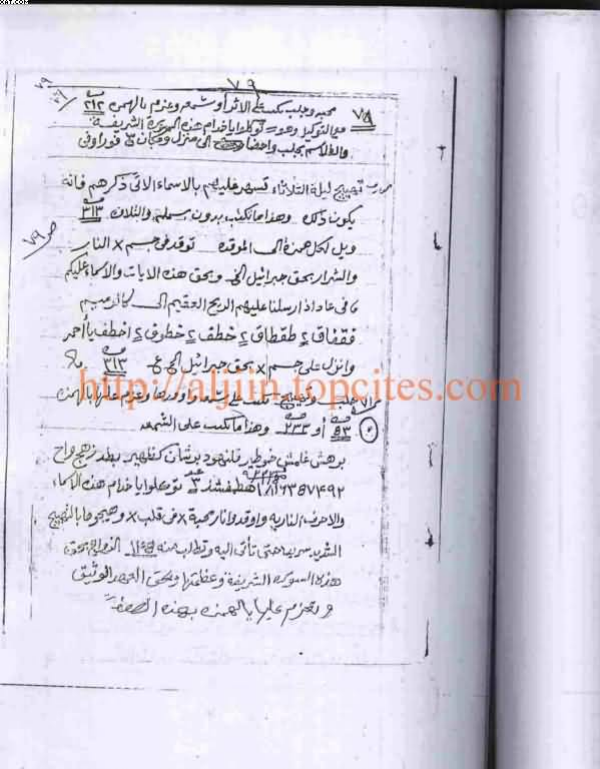 ٧٩
٧٨ محبه وجلب تكتب على الاثر أو شمعه وعزم بالهمزه ٣١٣
مع التوكيل وهو توكلوا يا خدام هذه السورة الشريفة
والطلاسم بجلب واحضار الى منزل ومكان فورا وفي
تهييج ليلة الثلاثاء تسهر عليهم بالاسماء الاتى ذكرهم فانه
يكون ذلك وهذا ما تكتب بدون بسمله والتلاوه ٣١٣
ويل لكل همزه الى الموقده توقد في جسم × النار
والشرار بحق جبرائيل الخ وبحق هذه الايات والاسماء عليكم
وفى عاد اذ ارسلنا عليهم الريح العقيم الى كالرميم
فقفاق ٢ طقطاق ٢ خطف ٢ خطوف ٢ اخطف يا أحمر
وانزل على جسم × بحق جبرائيل الخ ٣١٣
http://aljiin.topcites.com
جلب وتهييج تكتب على شمعه وعزم عليها بالهمزه
٥٣ أو ٢٣٣ وهذا ما تكتب على الشمعه
برهش غلمش خوطير قلنهود برشان كظهير بطد زهج واح
هطفشذ توكلوا يا خدام هذه الاسماء
والاحرف الناريه واوقدوا نار محبة × فى قلب × وهيجوها بالتهييج
الشديد حتى تأتى اليه وتطلب منه بحق
هذه السوره الشريفة وعظمتها وبحق العهد الوثيق
وتعزم عليها بالهمزه بهذه الصفة
ص ٧٩